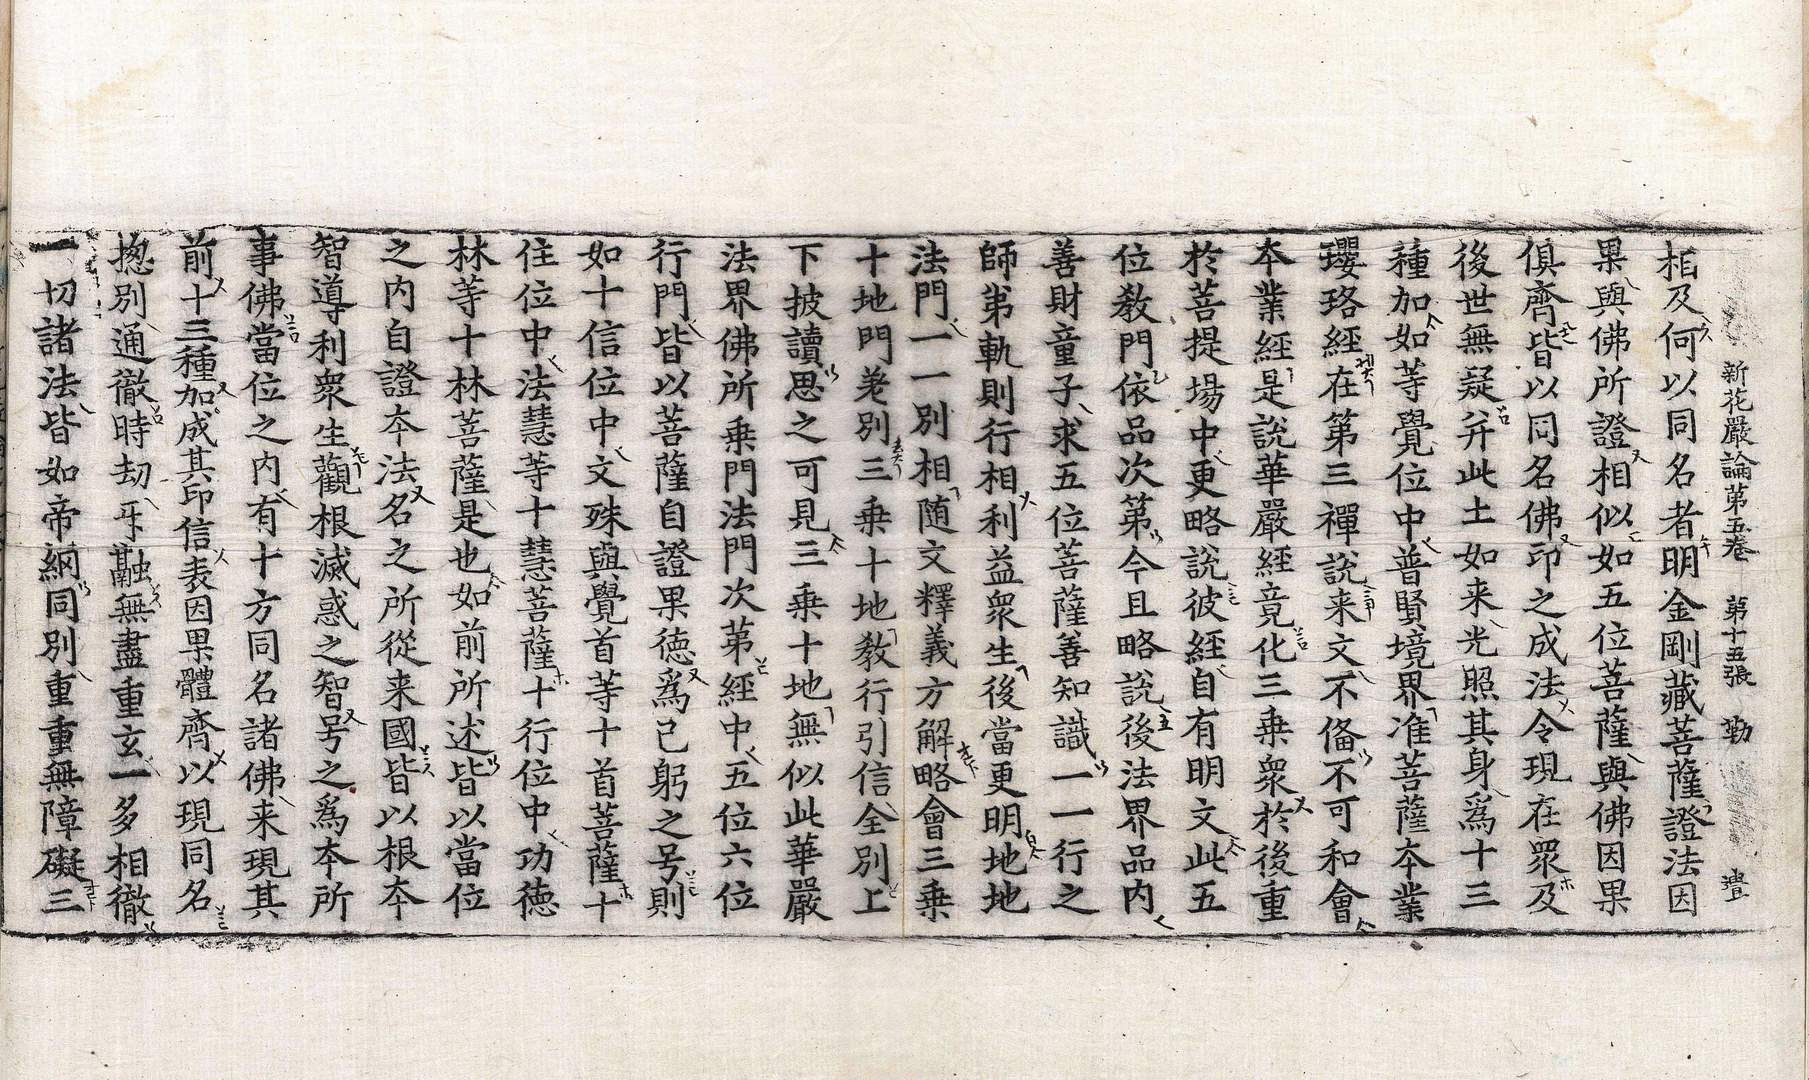 新花嚴論第五卷 第十五張 勤
相及何以同名者明金剛藏菩薩證法因
果與佛所證相似如五位菩薩與佛因果
俱齊皆以同名佛印之成法令現在眾及
後世無疑并此土如来光照其身爲十三
種加如等覺位中普賢境界准菩薩夲業
瓔珞經在第三禪說来文不俻不可和會
夲業經是說華嚴經竟化三乗衆於後重
於菩提場中更略說彼經自有明文此五
位教門依品次第今且略說後法界品内
善財童子求五位菩薩善知識一一行之
師弟軌則行相利益眾生後當更明地地
法門一一別相随文釋義方解略會三乗
十地門差別三乗十地教行引信全別上
下披讀思之可見三乗十地無似此華嚴
法界佛所乗門法門次第經中五位六位
行門皆以菩薩自證果德爲己躬之号則
如十信位中文殊與覺首等十首菩薩十
住位中法慧等十慧菩薩十行位中功德
林等十林菩薩是也如前所述皆以當位
之内自證夲法名之所從来國皆以根夲
智導利衆生觀根滅惑之智号之爲夲所
事佛當位之内有十方同名諸佛来現其
前十三種加成其印信表因果體齊以現同名
揔別通徹時劫㸦融無盡重玄一多相徹
一切諸法皆如帝網同別重重無障礙三